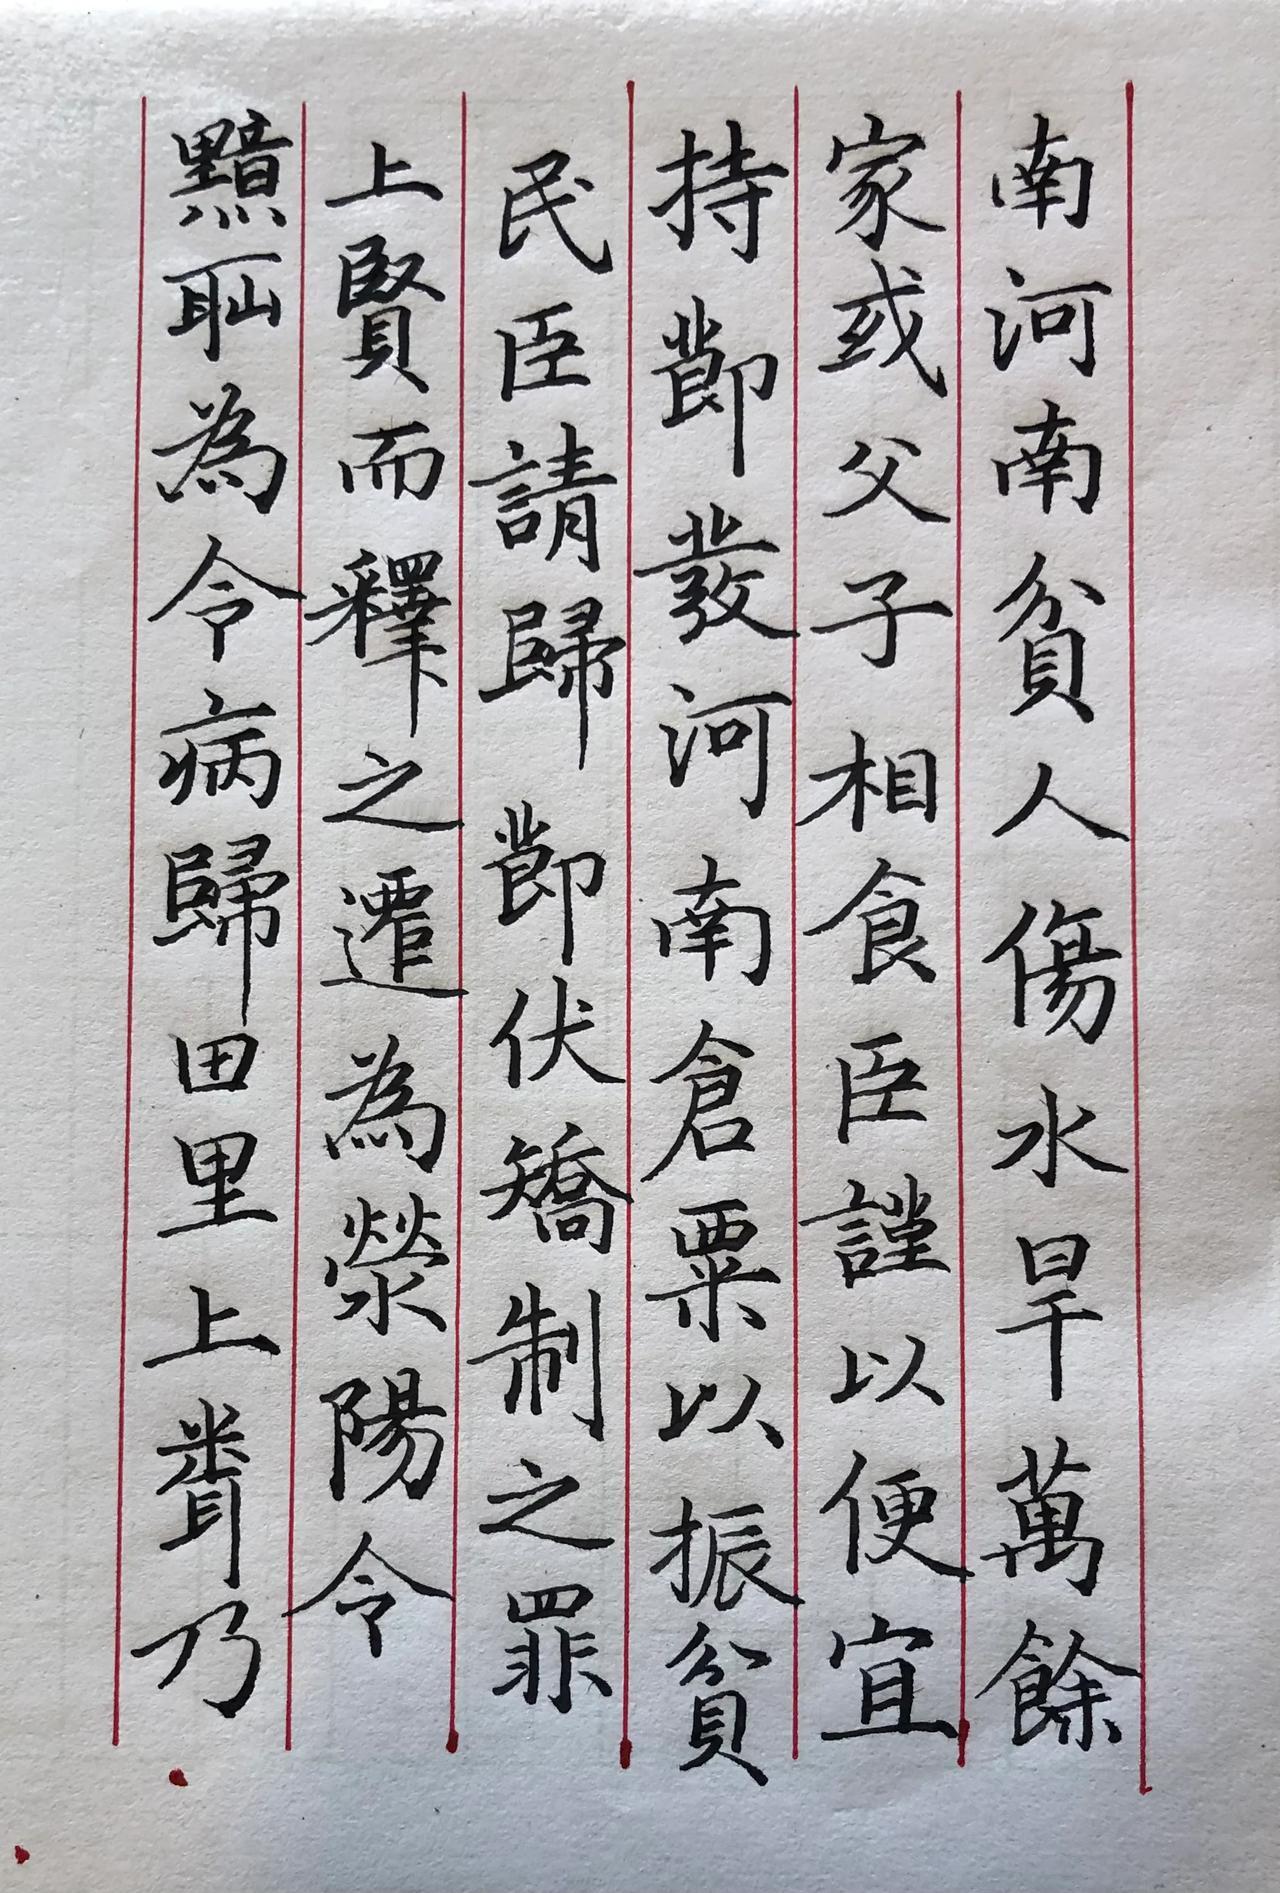 南河南貧人傷水旱萬餘
家或父子相食臣謹以便宜
持節發河南倉粟以振貧
民臣請歸節伏矯制之罪
上賢而釋之遷為滎陽令
黯恥為令病歸田里上聞乃